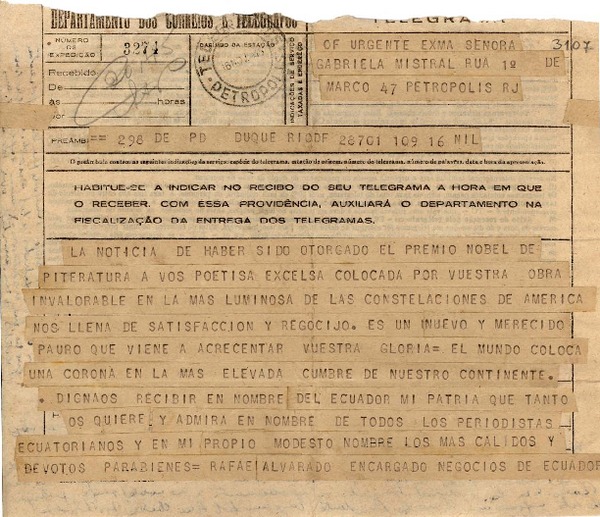 DEPARTAMENTO DOS CORREIOS E TELEGRAFOS
TELEGRAMA
NÚMERO DE EXPEDIÇÃO 3274
CARIMBO DA ESTAÇÃO
INDICAÇÕES DE SERVIÇO TAXADAS E ENDEREÇO
Recebido
De
às horas
por
PETROPOLIS
3107
OF URGENTE EXMA SENORA
GABRIELA MISTRAL RUA 1º DE
MARCO 47 PETROPOLIS RJ
PREÂMB: == 298 DE PD DUQUE RIODF 28701 109 16 NIL
O preâmbulo contém as seguintes indicações de serviço: espécie do telegrama, estação de origem, número do telegrama, número de palavras, data e hora da apresentação.
HABITUE-SE A INDICAR NO RECIBO DO SEU TELEGRAMA A HORA EM QUE
O RECEBER. COM ESSA PROVIDÊNCIA, AUXILIARÁ O DEPARTAMENTO NA
FISCALIZAÇÃO DA ENTREGA DOS TELEGRAMAS.
LA NOTICIA DE HABER SIDO OTORGADO EL PREMIO NOBEL DE
PITERATURA A VOS POETISA EXCELSA COLOCADA POR VUESTRA OBRA
INVALORABLE EN LA MAS LUMINOSA DE LAS CONSTELACIONES DE AMERICA
NOS LLENA DE SATISFACCION Y REGOCIJO. ES UN INUEVO Y MERECIDO
PAURO QUE VIENE A ACRECENTAR VUESTRA GLORIA= EL MUNDO COLOCA
UNA CORONA EN LA MAS ELEVADA CUMBRE DE NUESTRO CONTINENTE.
. DIGNAOS RECIBIR EN NOMBRE DEL ECUADOR MI PATRIA QUE TANTO
OS QUIERE Y ADMIRA EN NOMBRE DE TODOS LOS PERIODISTAS
ECUATORIANOS Y EN MI PROPIO MODESTO NOMBRE LOS MAS CALIDOS Y
DEVOTOS PARABIENES= RAFAEL ALVARADO ENCARGADO NEGOCIOS DE ECUADOR